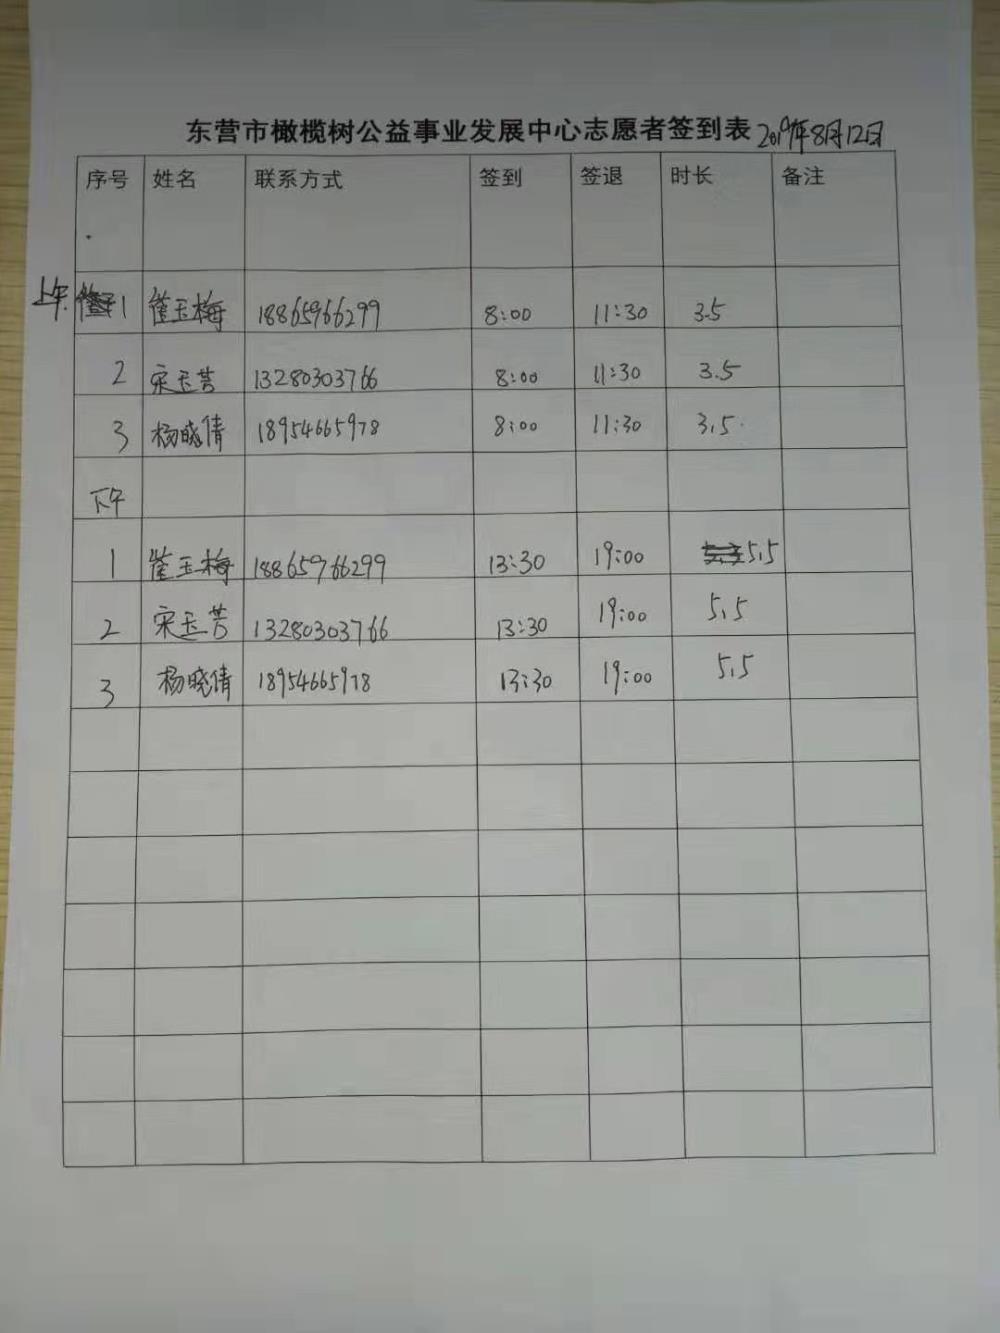 东营市橄榄树公益事业发展中心志愿者签到表 2019年8月12日
序号 姓名 联系方式 签到 签退 时长 备注
上午 1 崔玉梅 18865966299 8:00 11:30 3.5
2 宋玉芳 13280303766 8:00 11:30 3.5
3 杨晓倩 18954665978 8:00 11:30 3.5
下午
1 崔玉梅 18865966299 13:30 19:00 5.5
2 宋玉芳 13280303766 13:30 19:00 5.5
3 杨晓倩 18954665978 13:30 19:00 5.5